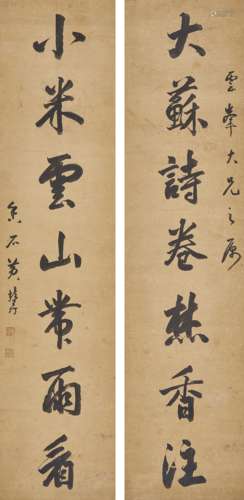 雲峯大兄之属
大蘇詩卷焚香注
小米雲山帶雨看
香石黃培芳